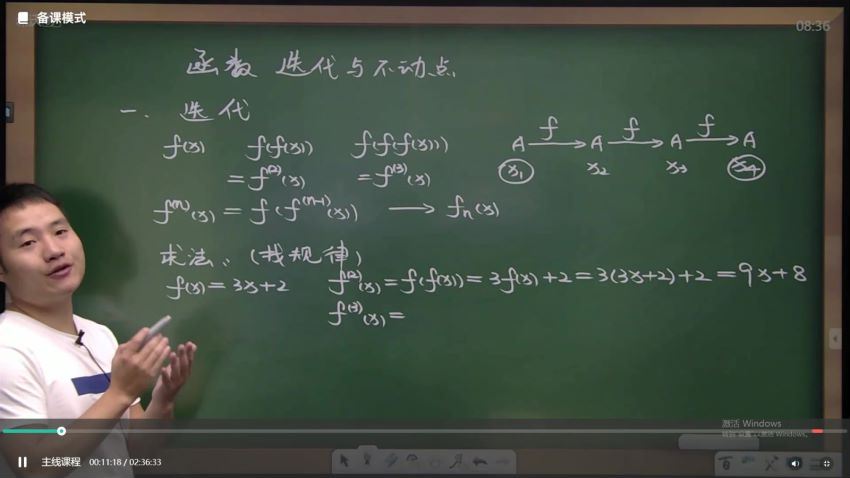 备课模式
08:36
函数 迭代与不动点
一、迭代
f(x) f(f(x)) f(f(f(x)))
= f⁽²⁾(x) = f⁽³⁾(x)
A f A f A f A
x₁ x₂ x₃ x₄
f⁽ⁿ⁾(x) = f(f⁽ⁿ⁻¹⁾(x)) ⟶ fₙ(x)
求法、(找规律)
f(x) = 3x+2 f⁽²⁾(x) = f(f(x)) = 3f(x)+2 = 3(3x+2)+2 = 9x+8
f⁽³⁾(x) =
激活 Windows
主线课程 00:11:18 / 02:36:33